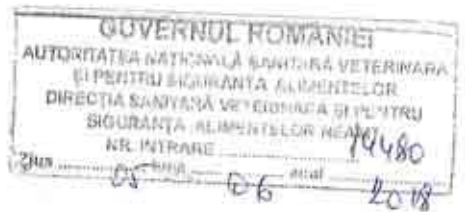 GUVERNUL ROMÂNIEI
AUTORITATEA NAȚIONALĂ SANITARĂ VETERINARĂ
ȘI PENTRU SIGURANȚA ALIMENTELOR
DIRECȚIA SANITARĂ VETERINARĂ ȘI PENTRU
SIGURANȚA ALIMENTELOR NEAMȚ
NR. INTRARE 14480
Ziua 05 luna 06 anul 2018